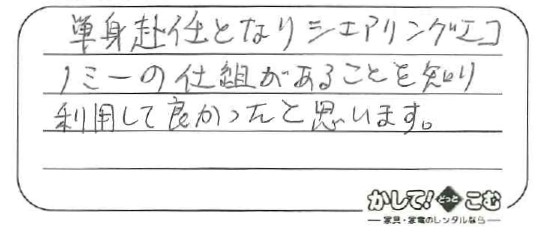 単身赴任となりシェアリングエコ
ノミーの仕組があることを知り
利用して良かったと思います。
かして!どっとこむ
家具・家電のレンタルなら